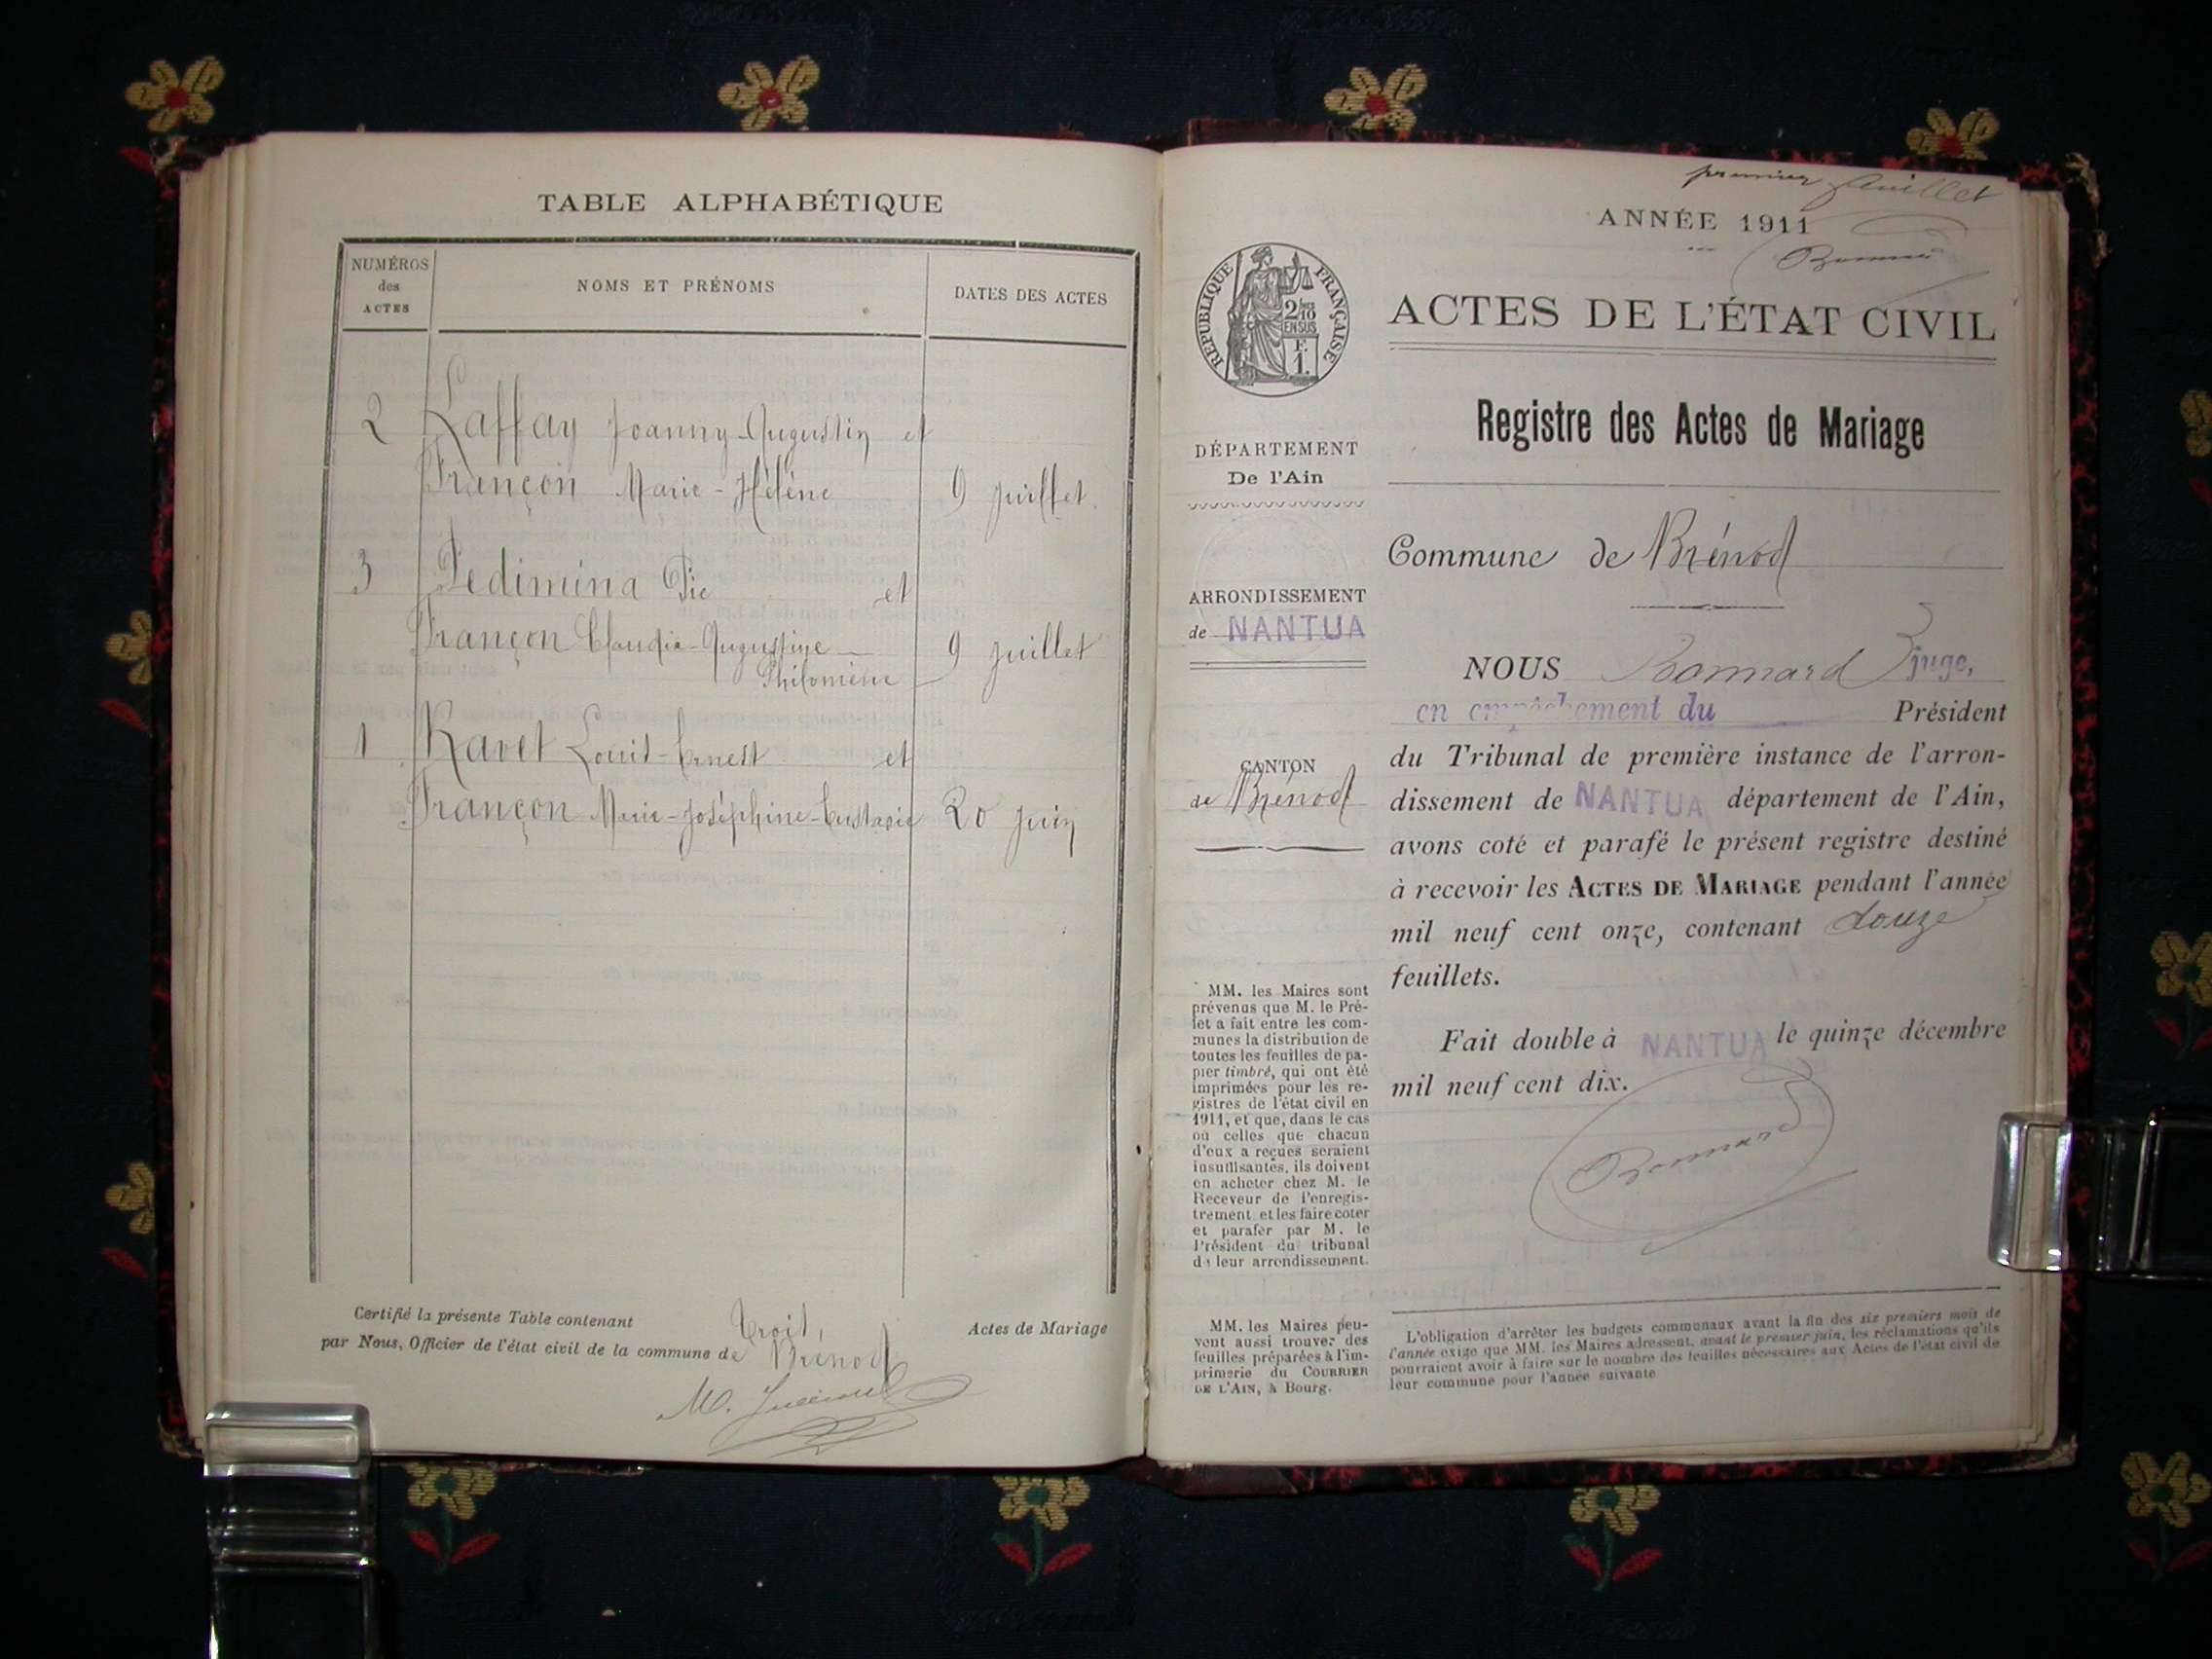 TABLE ALPHABÉTIQUE
NUMÉROS
des
ACTES
NOMS ET PRÉNOMS
DATES DES ACTES
2 Laffay Joanny-Augustin et
Françon Marie-Hélène 9 juillet
3 Pedimina Pie et
Françon Claudia-Augustine
Philomène 9 juillet
1 Ravet Louis-Ernest et
Françon Marie-Joséphine-Eustasie 20 juin
Certifié la présente Table contenant trois, Actes de Mariage
par Nous, Officier de l'état civil de la commune de Brénod
premier feuillet
ANNÉE 1911
Bonnard
RÉPUBLIQUE FRANÇAISE
2/10
EN SUS
F.
1.
ACTES DE L'ÉTAT CIVIL
Registre des Actes de Mariage
DÉPARTEMENT
De l'Ain
ARRONDISSEMENT
de NANTUA
CANTON
de Brénod
MM. les Maires sont
prévenus que M. le Pré-
fet a fait entre les com-
munes la distribution de
toutes les feuilles de pa-
pier timbré, qui ont été
imprimées pour les re-
gistres de l'état civil en
1911, et que, dans le cas
où celles que chacun
d'eux a reçues seraient
insuffisantes, ils doivent
en acheter chez M. le
Receveur de l'enregis-
trement et les faire coter
et parafer par M. le
Président du tribunal
de leur arrondissement.
MM. les Maires peu-
vent aussi trouver des
feuilles préparées à l'im-
primerie du COURRIER
DE L'AIN, à Bourg.
Commune de Brénod
NOUS Bonnard juge,
en empêchement du Président
du Tribunal de première instance de l'arron-
dissement de NANTUA département de l'Ain,
avons coté et parafé le présent registre destiné
à recevoir les ACTES DE MARIAGE pendant l'année
mil neuf cent onze, contenant douze
feuillets.
Fait double à NANTUA le quinze décembre
mil neuf cent dix.
Bonnard
L'obligation d'arrêter les budgets communaux avant la fin des six premiers mois de
l'année exige que MM. les Maires adressent, avant le premier juin, les réclamations qu'ils
pourraient avoir à faire sur le nombre des feuilles nécessaires aux Actes de l'état civil de
leur commune pour l'année suivante